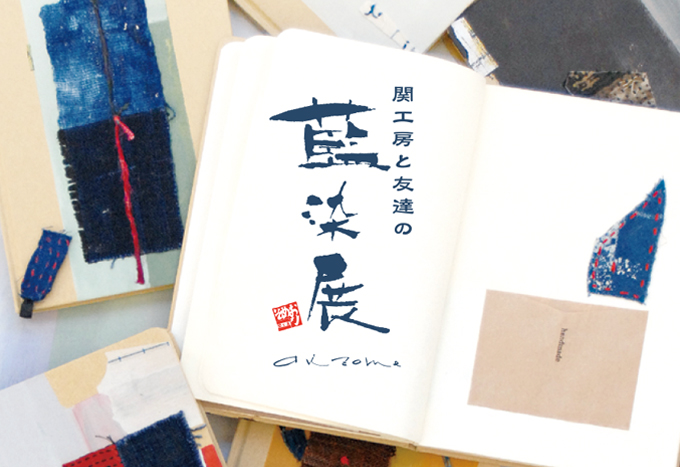 関工房と友達の
藍染展
aizome
handmade